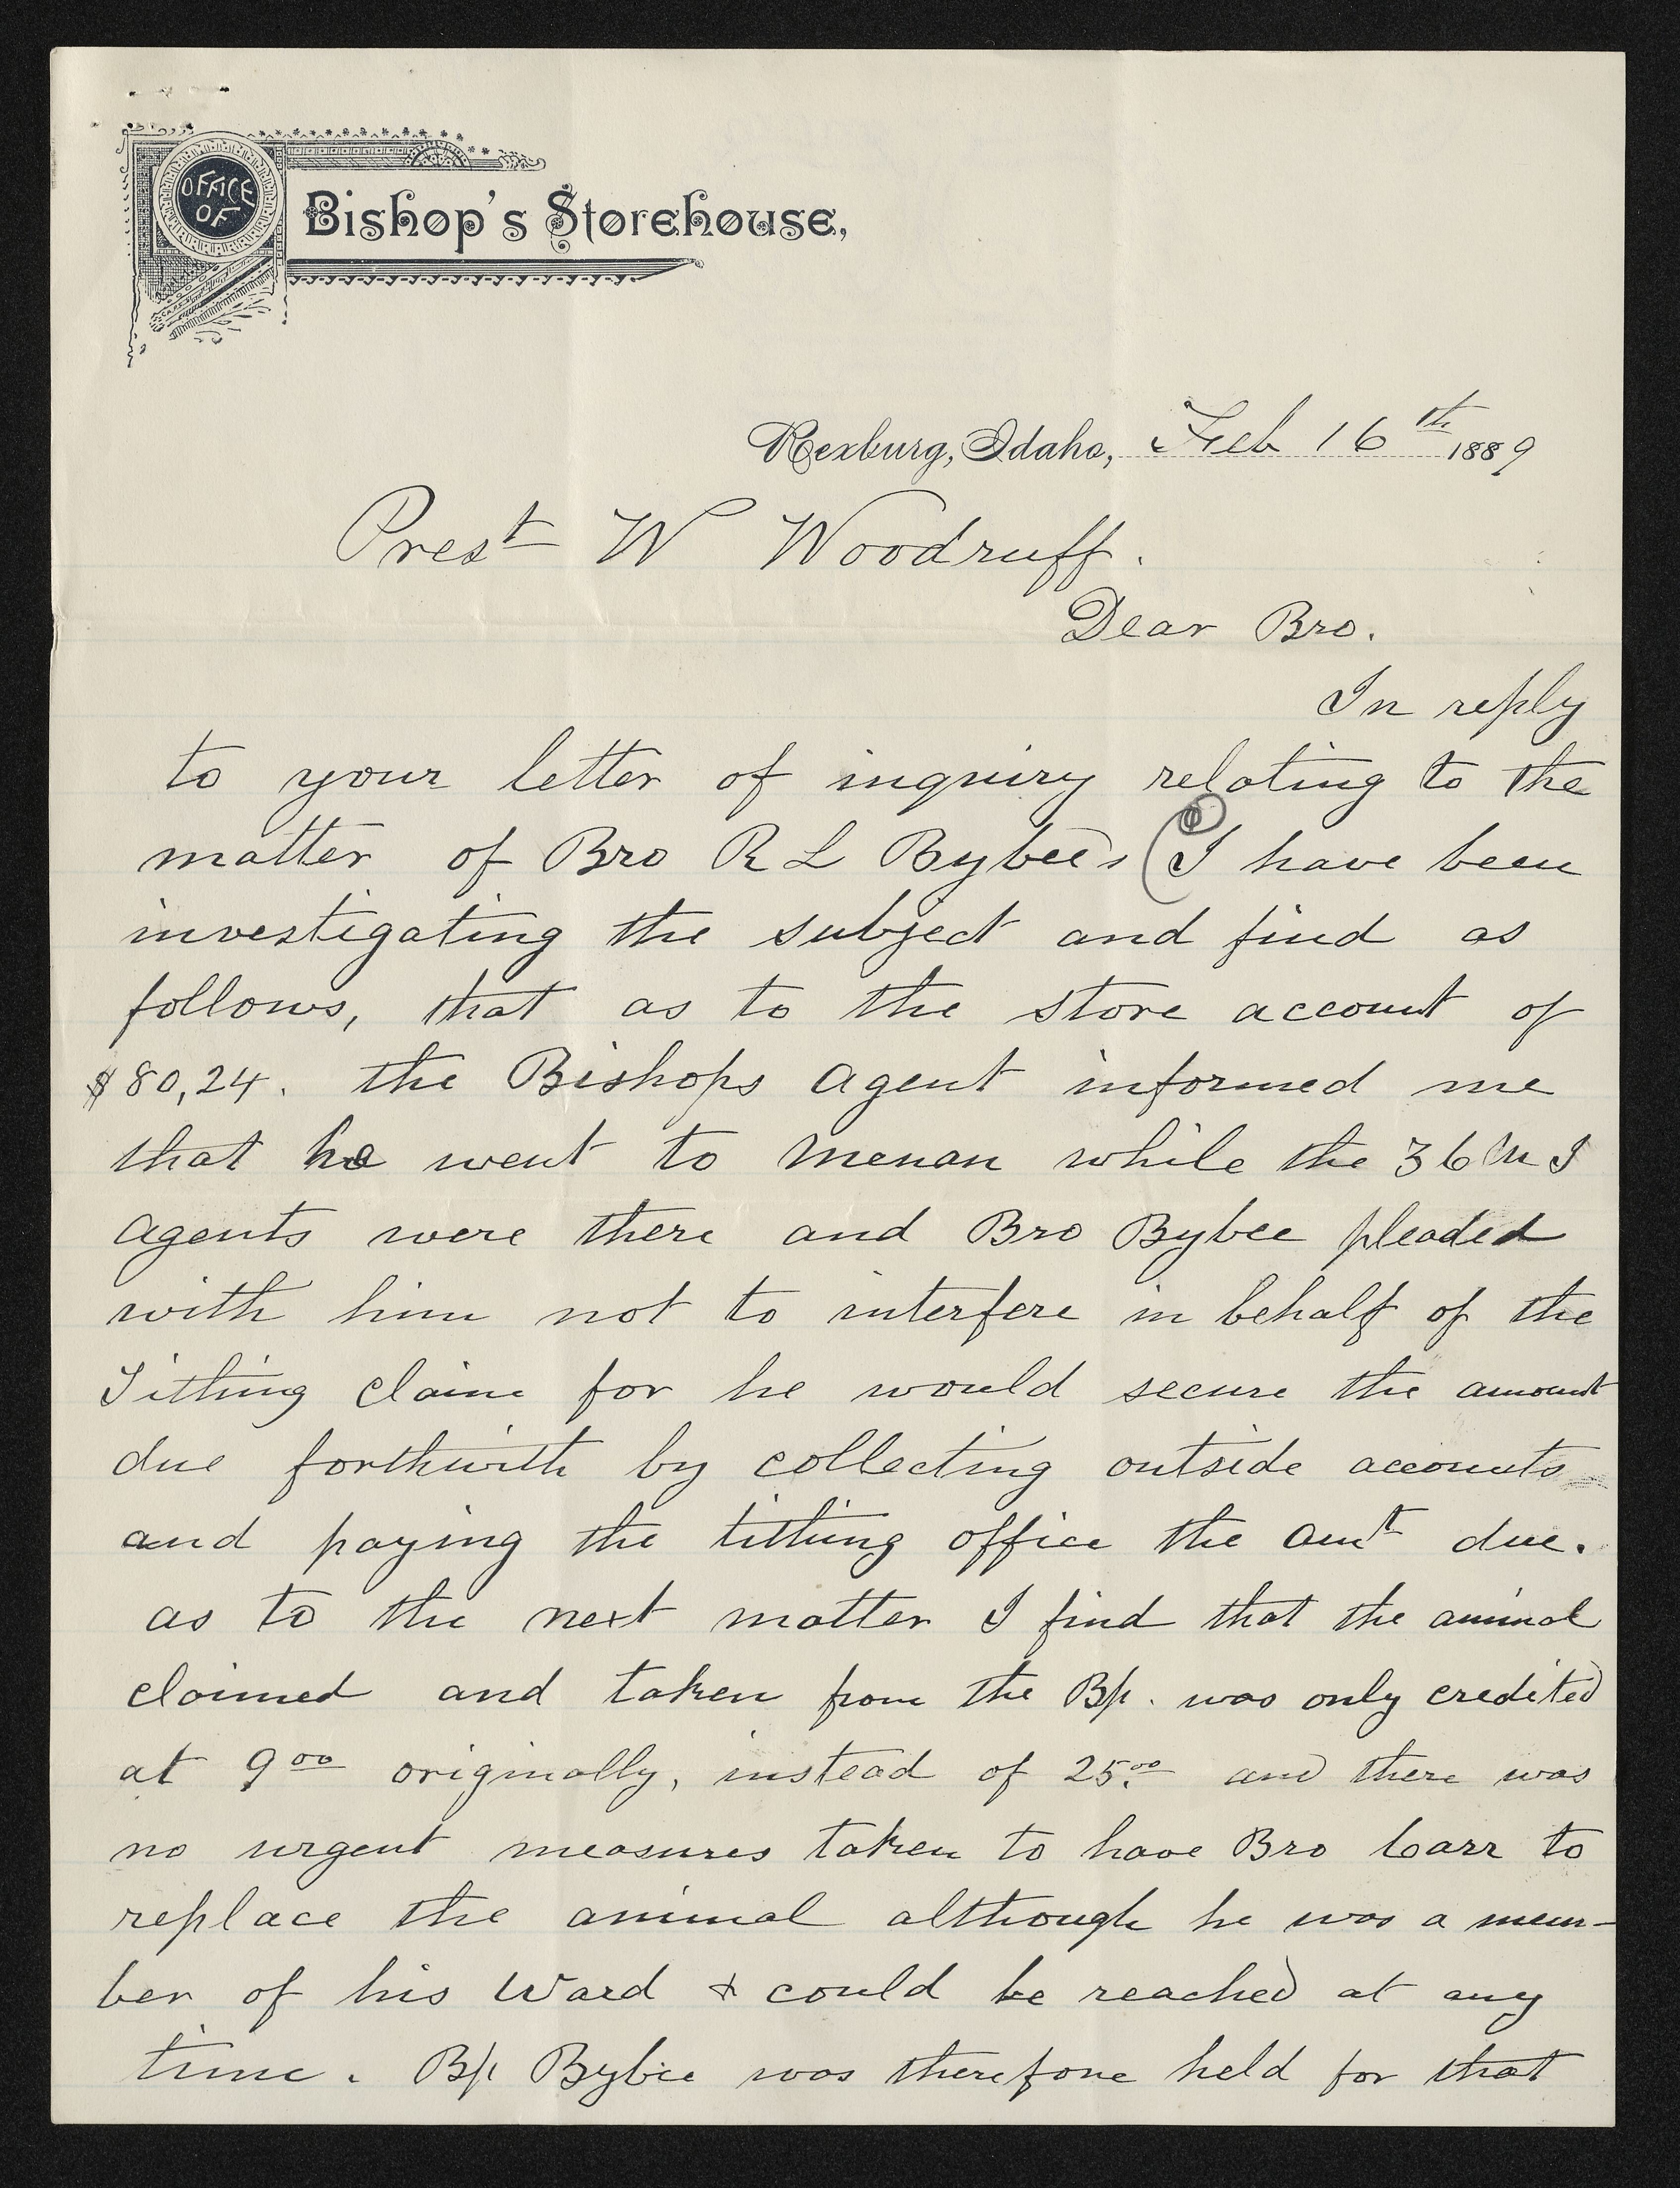 OFFICE
OF
Bishop's Storehouse,
Rexburg, Idaho, Feb 16th 1889
Prest W Woodruff.
Dear Bro.
In reply
to your letter of inquiry relating to the
matter of Bro R L Bybee's (I have been
investigating the subject and find as
follows, that as to the store account of
$80,24. the Bishops agent informed me
that he went to Menan while the Z C M I
agents were there and Bro Bybee pleaded
with him not to interfere in behalf of the
Tithing claim for he would secure the amount
due forthwith by collecting outside accounts
and paying the tithing office the amt due.
as to the next matter I find that the animal
claimed and taken from the Bp. was only credited
at 9oo originally, instead of 25.oo and there was
no urgent measures taken to have Bro Carr to
replace the animal although he was a mem-
ber of his Ward & could be reached at any
time. Bp Bybee was therefore held for that